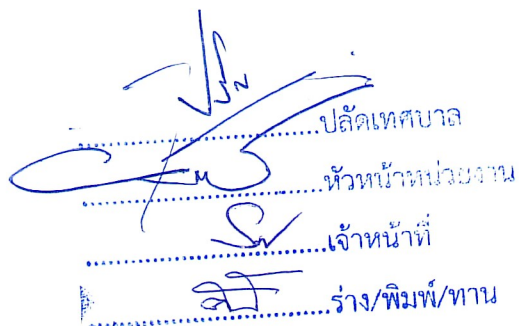 ....................ปลัดเทศบาล
....................หัวหน้าหน่วยงาน
....................เจ้าหน้าที่
....................ร่าง/พิมพ์/ทาน